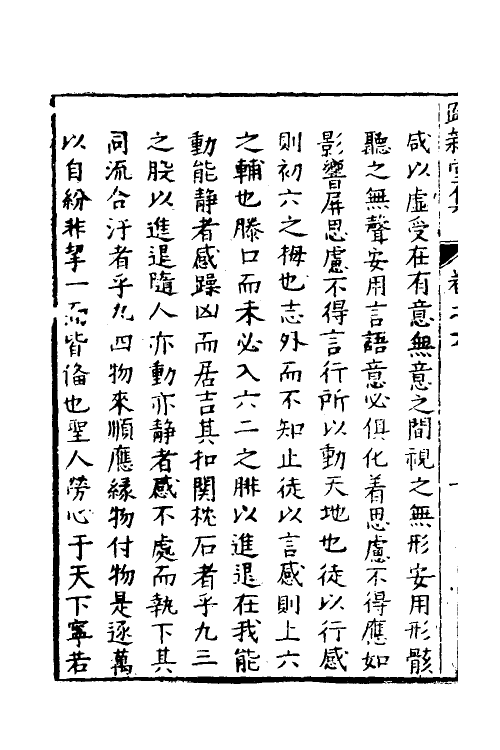 咸以虛受在有意無意之間視之無形安用形骸
聽之無聲安用言語意必俱化着思慮不得應如
影響屏思慮不得言行所以動天地也徒以行感
則初六之拇也志外而不知止徒以言感則上六
之輔也滕口而未必入六二之腓以進退在我能
動能靜者感躁凶而居吉其抇関枕石者乎九三
之股以進退隨人亦動亦静者感不處而執下其
同流合汙者乎九四物來順應緣物付物是逐萬
以自紛非挈一而皆俻也聖人勞心于天下寧若